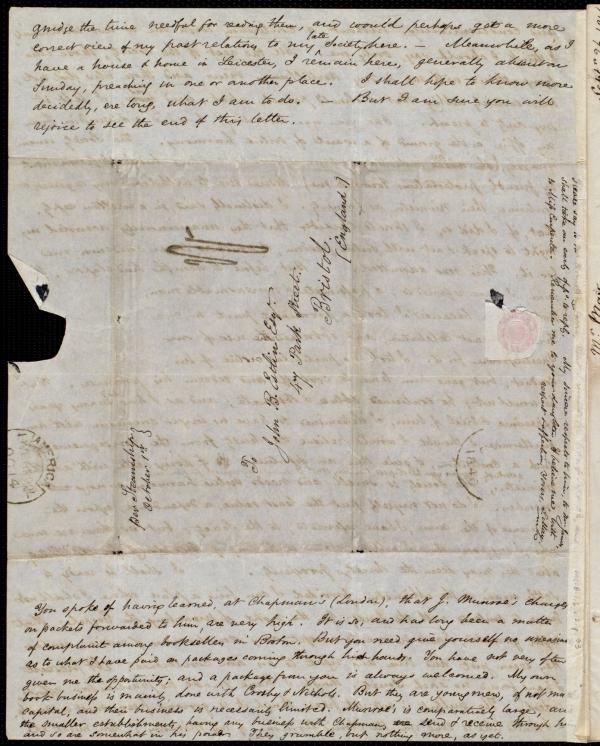 grudge the time needful for reading them, and would perhaps get a more
correct view of my past relations to my late Society here. — Meanwhile, as I
have a house & home in Leicester, I remain here, generally absent on
Sunday, preaching in one or another place. I shall hope to know more
decidedly, ere long, what I am to do. — But I am sure you will
rejoice to see the end of this letter.
To
John B. Estlin Esqr.
47 Park Street.
Bristol.
(England.)
per Steamship
October 1st
AMERICA
shall take an early oppy. to reply. My sincere respects to him, to
to Miss Remember me to your daughter, & believe me, with
You spoke of having learned, at Chapman's (London), that J. Munroe's charges
on packets forwarded to him are very high. It is so, and has long been a matter
of complaint among booksellers in Boston. But you need give yourself no uneasiness
as to what I have paid on packages coming through his hands. You have not very often
given me the opportunity; and a package from you is always welcomed. My own
book business is mainly done with Crosby & Nichols. But they are young men, of not much
capital, and their business is necessarily limited. Munroe's is comparatively large, and
the smaller establishments, having any business with Chapman, send & receive through him
and so are somewhat in his power. They grumble, but nothing more, as yet.